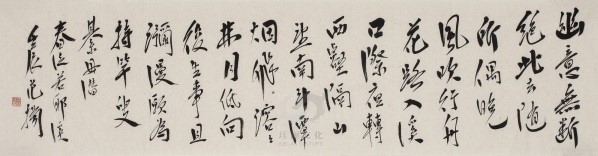 幽意無斷
絕此去隨
所偶晚
風吹行舟
花路入溪
口際夜轉
西壑隔山
望南斗潭
烟飛溶々
林月低向
後生事且
瀰漫願為
持竿叟
綦毋潛
春泛若耶溪
壬辰